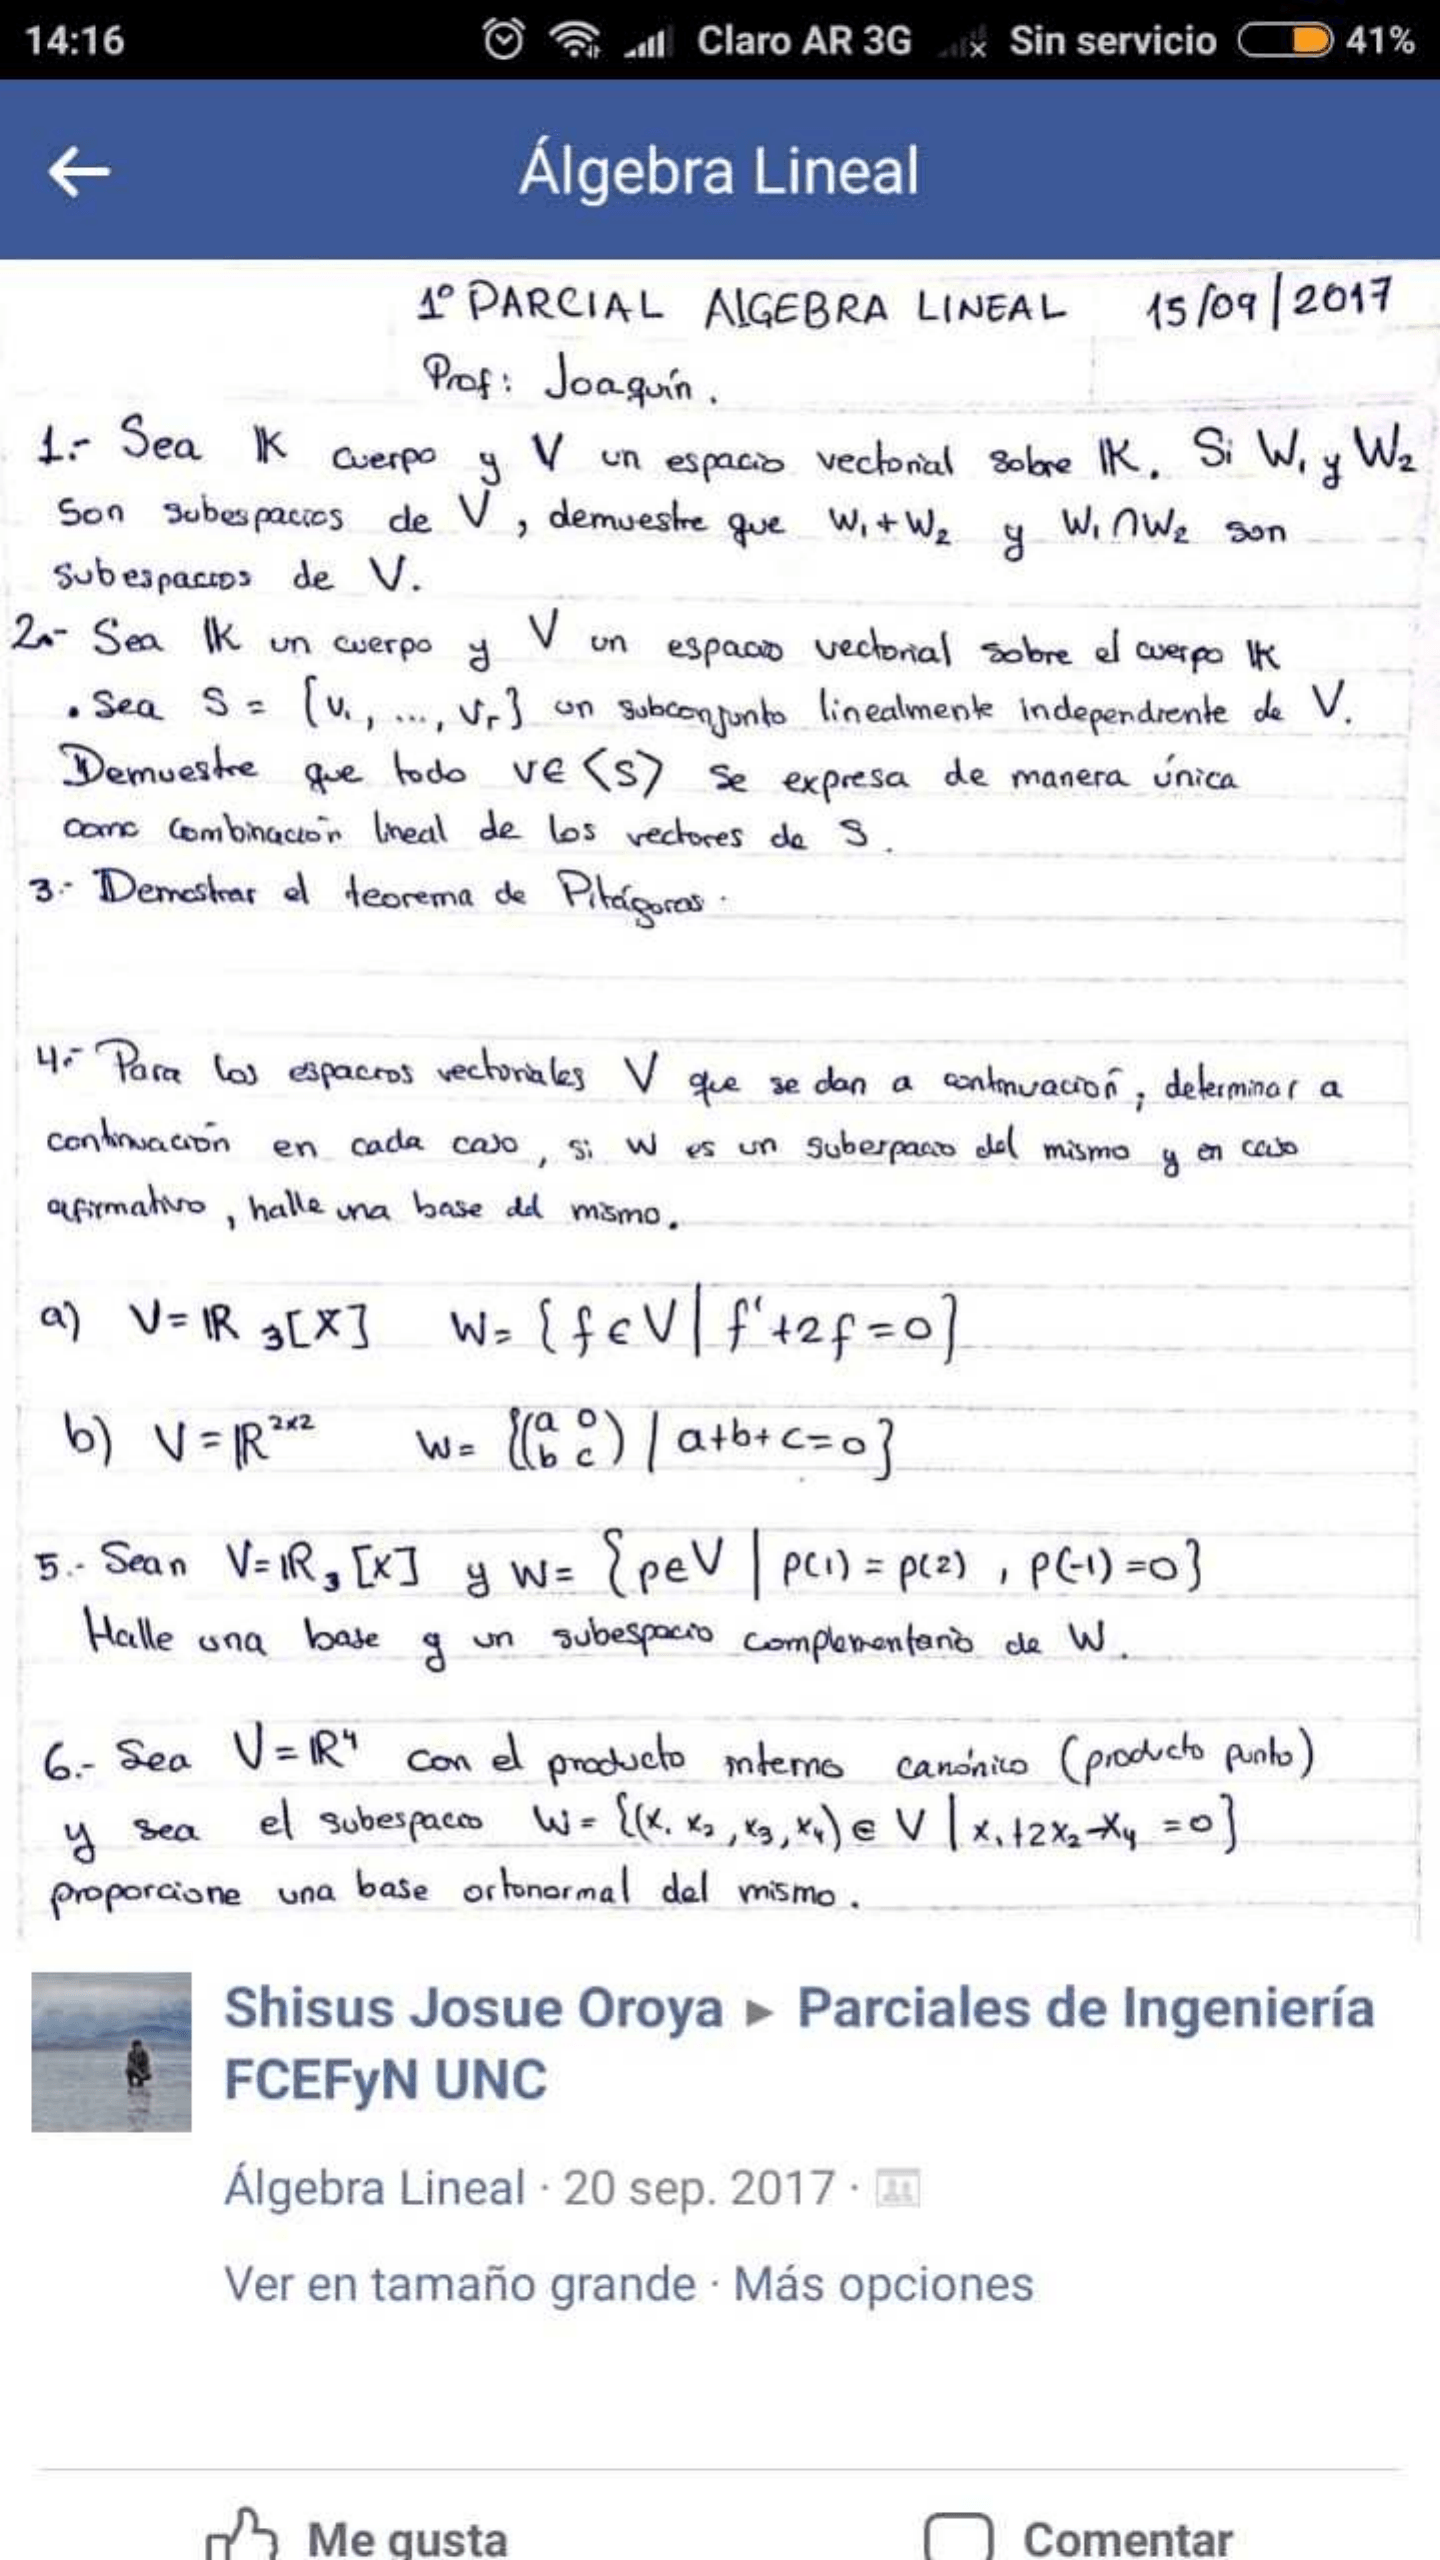 14:16 Claro AR 3G Sin servicio 41%
Álgebra Lineal
1º PARCIAL ALGEBRA LINEAL 15/09/2017
Prof: Joaquín.
1.- Sea K cuerpo y V un espacio vectorial sobre K. Si W₁ y W₂
son subespacios de V, demuestre que W₁+W₂ y W₁∩W₂ son
subespacios de V.
2.- Sea K un cuerpo y V un espacio vectorial sobre el cuerpo K
. Sea S = {v₁, ..., vᵣ} un subconjunto linealmente independiente de V.
Demuestre que todo v∈⟨S⟩ se expresa de manera única
como combinación lineal de los vectores de S.
3.- Demostrar el teorema de Pitágoras.
4.- Para los espacios vectoriales V que se dan a continuación, determinar a
continuación en cada caso, si W es un suberpacio del mismo y en caso
afirmativo, halle una base del mismo.
a) V=ℝ₃[X] W= {f∈V| f'+2f=0}
b) V=ℝ²ˣ² W= {(a 0
b c) / a+b+c=0}
5.- Sean V=ℝ₃[X] y W= {p∈V | p(1) = p(2), p(-1)=0}
Halle una base y un subespacio complementario de W.
6.- Sea V=ℝ⁴ con el producto interno canónico (producto punto)
y sea el subespacio W= {(x₁ x₂, x₃, x₄) ∈ V | x₁+2x₂-x₄ =0}
proporcione una base ortonormal del mismo.
Shisus Josue Oroya ▸ Parciales de Ingeniería
FCEFyN UNC
Álgebra Lineal · 20 sep. 2017 ·
Ver en tamaño grande · Más opciones
Me gusta Comentar